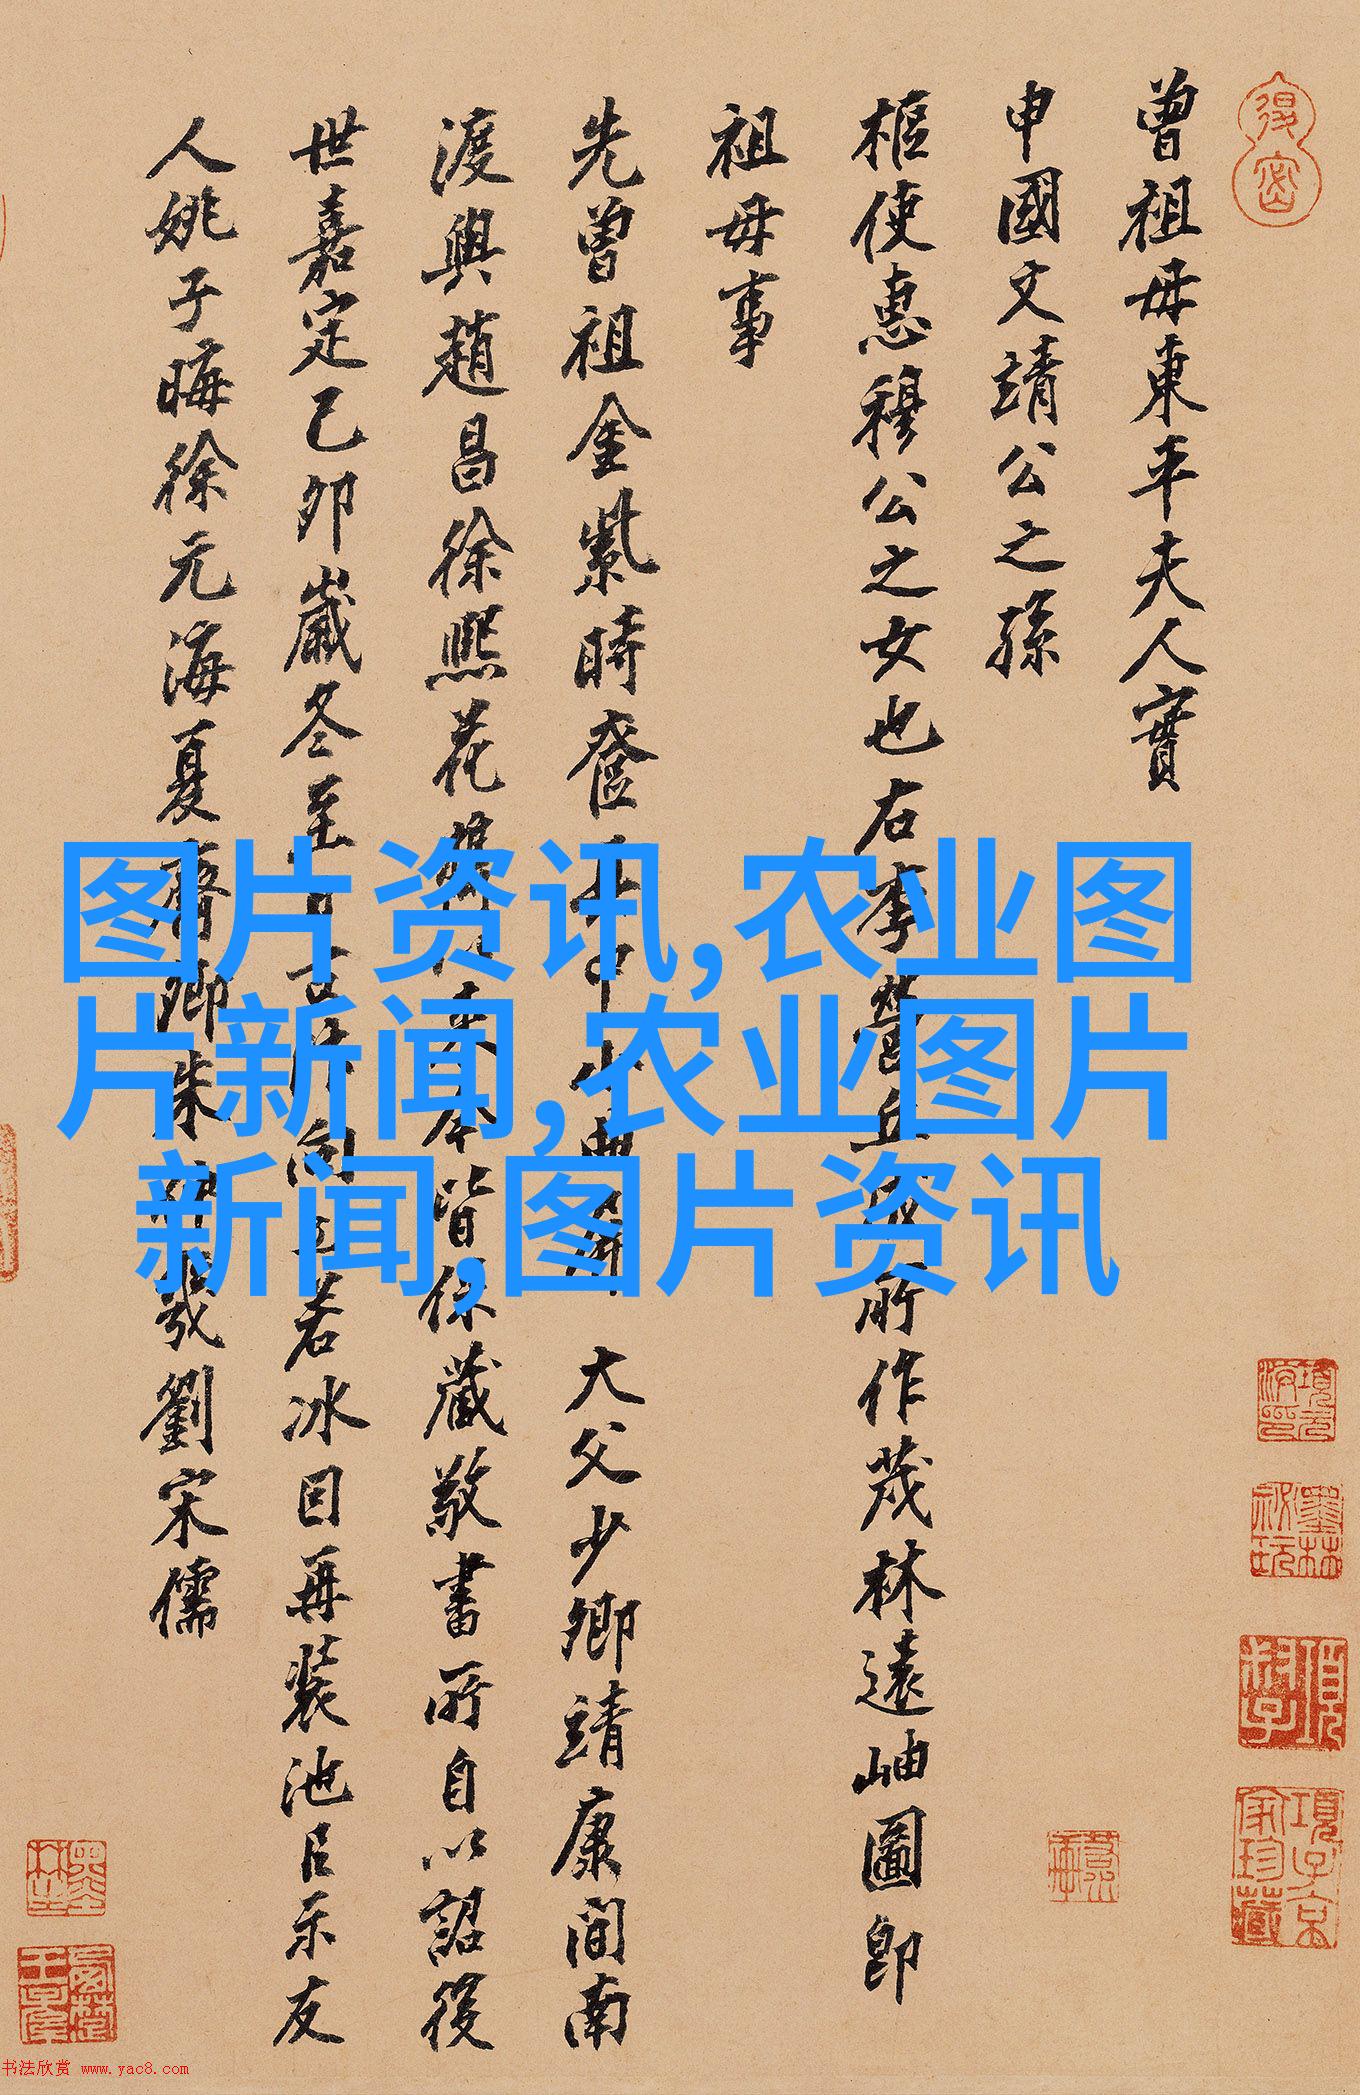 曾祖母東平夫人實
申國文靖公之孫
樞使惠穆公之女也右李營丘所作茂林遠岫圖即
祖母事
先曾祖金紫時奩中小大父少卿靖康間南
渡與趙昌徐熙花來今皆保藏敬書所自以詔後
世嘉定己卯歲冬至向若冰因再裝池示友
人姚子晦徐元海夏齊卿朱劉宋儒
图片资讯,农业图
片新闻,农业图片
新闻,图片资讯
书法欣赏 www.yac8.com